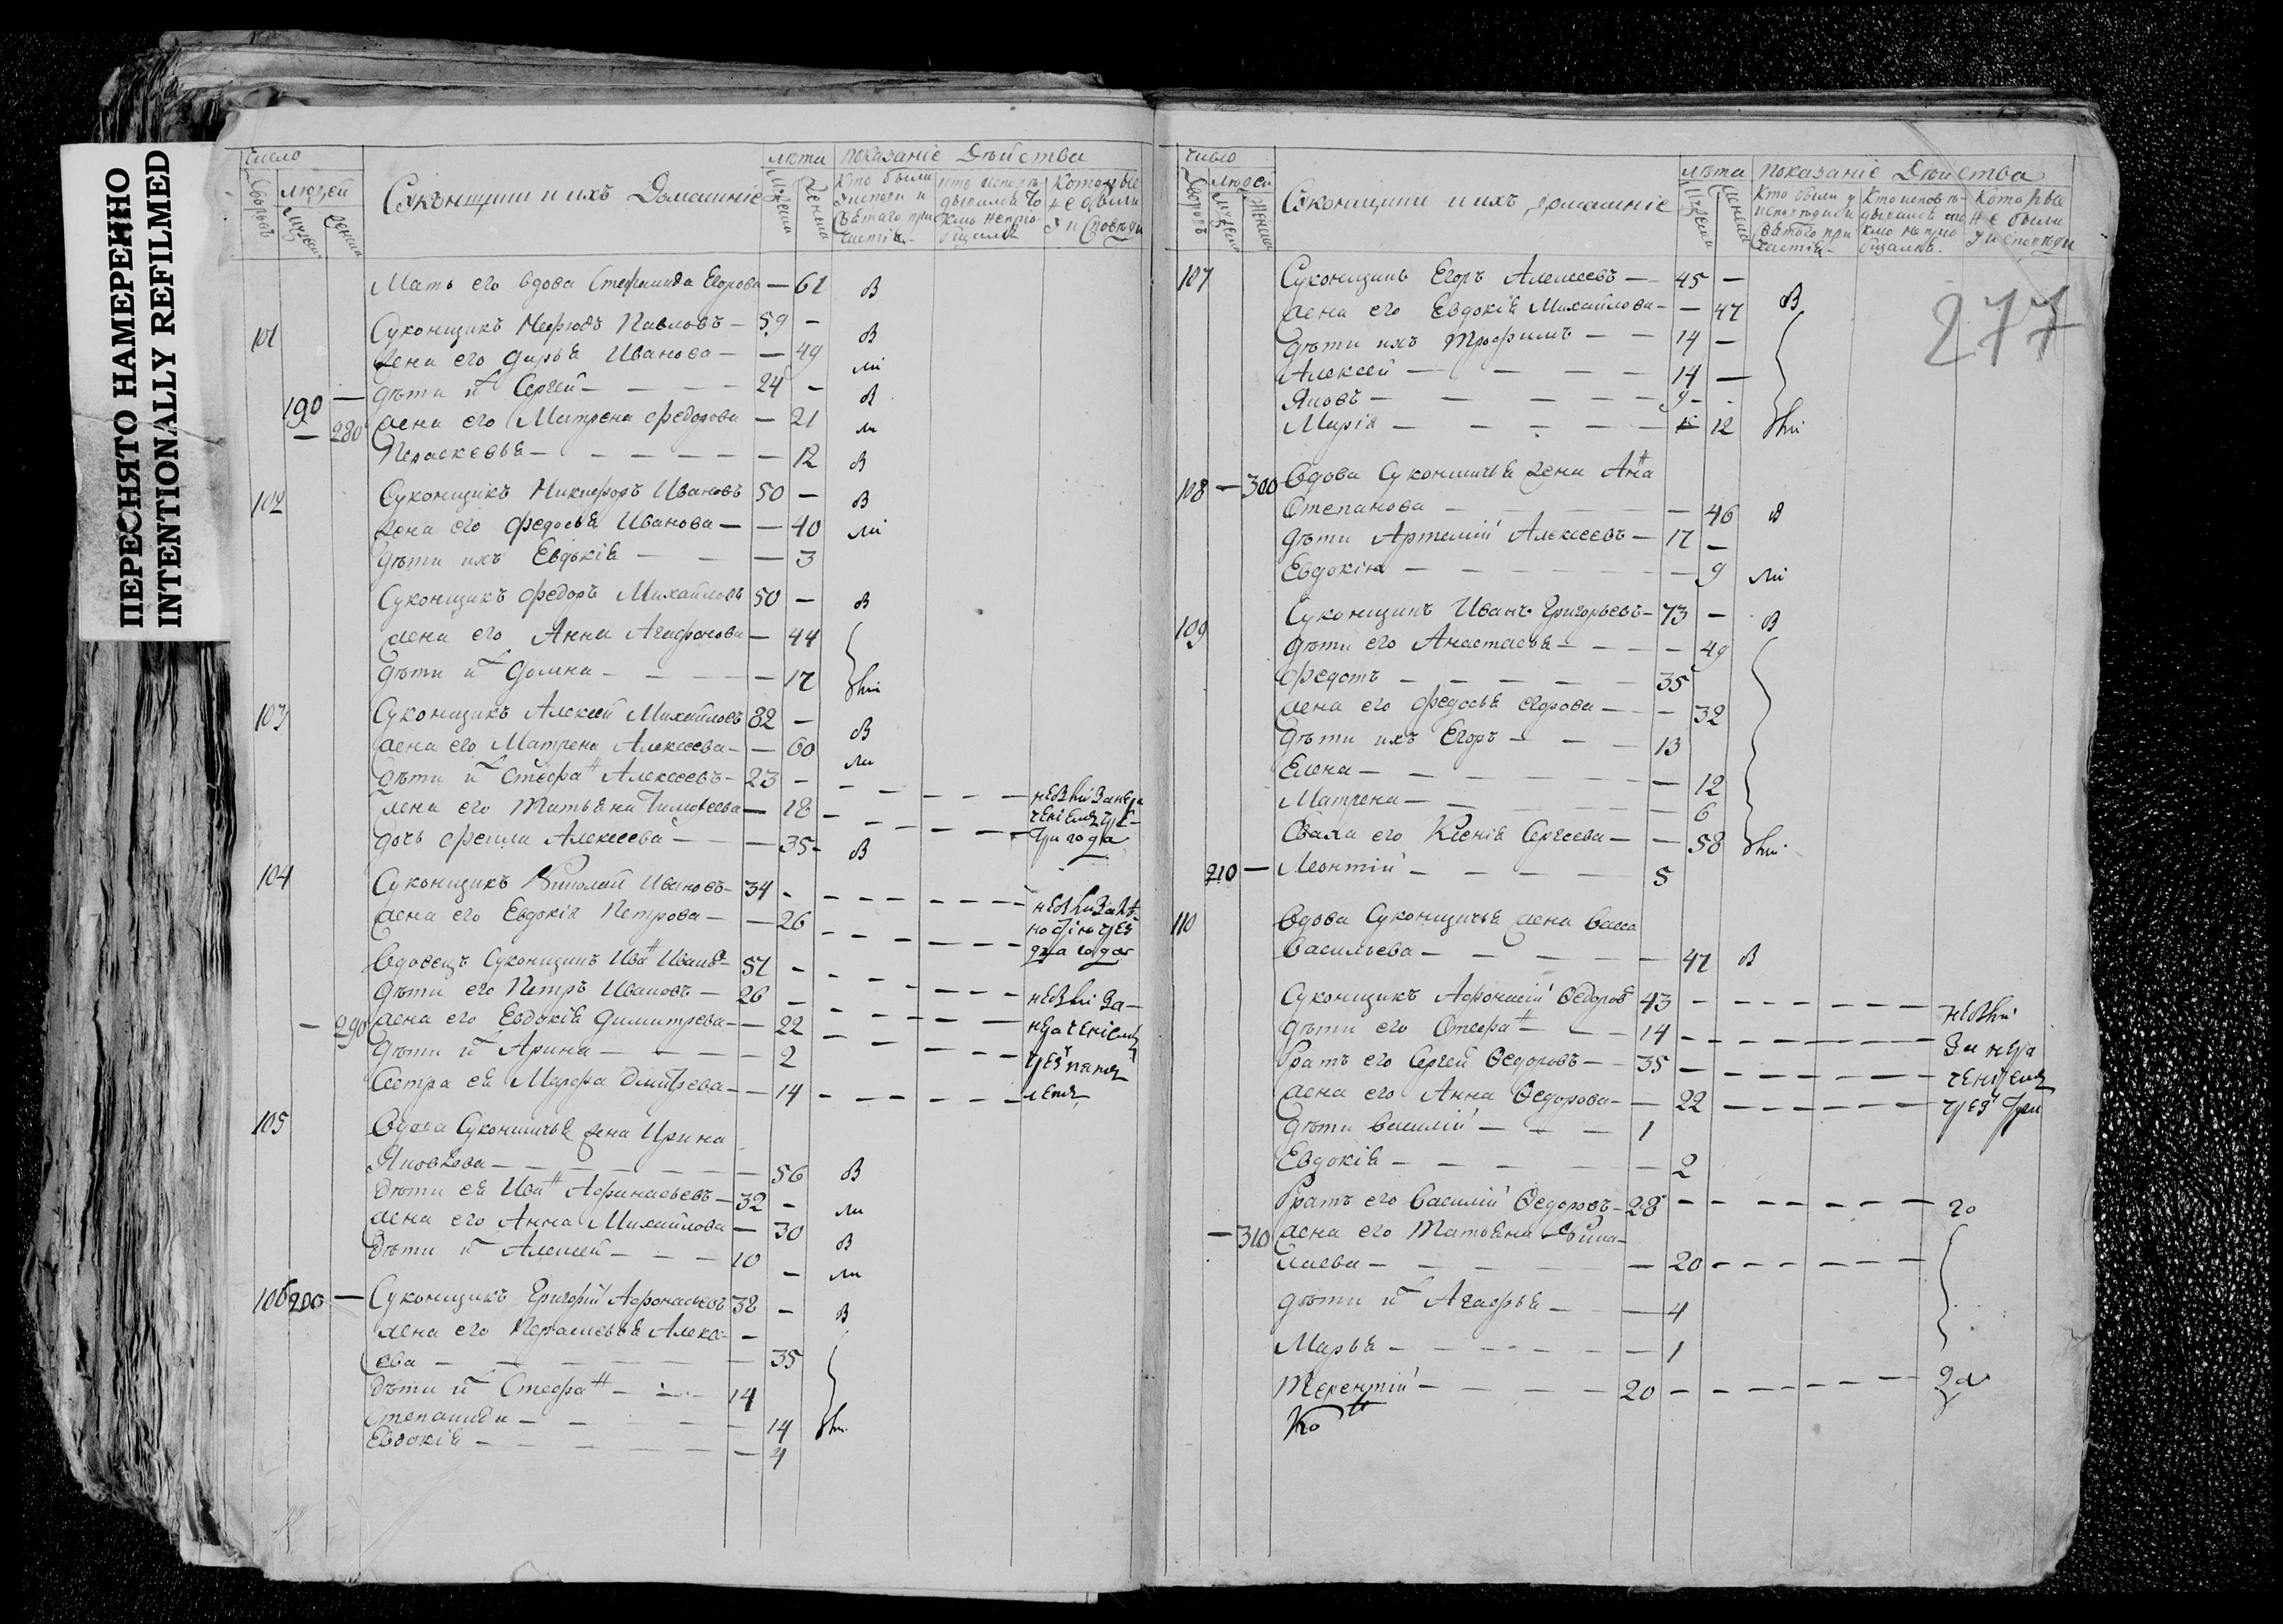 ПЕРЕСНЯТО НАМЕРЕННО
INTENTIONALLY REFILMED
число
людей
Суконщики и ихъ Домашніе
лѣта
показаніе Дѣйства
Кто были
у исповѣди и
святаго при
частія
Которые
не были
у исповѣди
Мать его вдова Стефанида Егорова — 61 в
101 Суконщикъ Мефодъ Павловъ — 59 — в
жена его Дарья Иванова — — 49 ли
дѣти их Сергей — 24 — в
190 —
— 280 жена его Матрена Федорова — 21 ли
Параскевья — — 12 в
102 Суконщикъ Никифоръ Ивановъ 50 — в
жена его Федосья Иванова — — 40 ли
дѣти ихъ Евдокія — — 3
Суконщикъ Федоръ Михайловъ 50 — в
жена его Анна Агафонова — 44
дѣти их Домна — — 17
103 Суконщикъ Алексей Михайловъ 82 — в
жена его Матрена Алексеева — — 60 ли
дѣти их Стефан Алексеевъ — 23 —
жена его Татьяна Тимофеева — 18
дочь Алексеева — — 35 в
три года
104 Суконщикъ Николай Ивановъ — 34 —
жена его Евдокія Петрова — — 26
два года
Вдовецъ Суконщикъ Иван Иванов — 57 —
дѣти его Петръ Ивановъ — 26 —
— 290 жена его Евдокія Димитрева — — 22
дѣти их Арина — — 2
Сестра ея Марфа Дмитрева — — 14
105 Вдова Суконшичья жена Ирина
Яковлева — — 56 в
дѣти ея Иван Афанасьевъ — 32 — ли
жена его Анна Михайлова — 30 в
дѣти их Алексей — 10 — ли
106 200 — Суконщикъ Григорій Афонасьевъ 38 — в
жена его Параскевья Алексе-
ева — — 35
дѣти их Стефан — 14
Степанида — — 14
Евдокія — — 4
277
число
людей
Суконщики и ихъ домашніе
лѣта
показаніе Дѣйства
Кто были у
исповѣди и
святаго при
частія
Которые
не были
у исповѣди
107 Суконщикъ Егоръ Алексеевъ — 45 —
жена его Евдокія Михайлова — — 47 в
дѣти ихъ Трофимъ — — 14 —
Алексей — 14 —
Яковъ — 9 —
Марія — 12
108 — 300 Вдова Суконшичья жена Анна
Степанова — — 46 в
дѣти Артемій Алексеевъ — 17 —
Евдокія — — 9 ли
109 Суконщикъ Иванъ Григорьевъ — 73 — в
дѣти его Анастасья — — 49
Федотъ — 35
жена его Федосья Егорова — — 32
дѣти ихъ Егоръ — 13
Елена — — 12
Матрена — — 6
Сваха его Ксенія Сергеева — — 58
210 — Леонтій — 5
110 Вдова Суконщичья жена Васса
Васильева — — 47 в
Суконщикъ Афонасій Ѳедоров 43 —
дѣти его Стефан — 14
Братъ его Сергей Ѳедоровъ — 35 —
жена его Анна Ѳедорова — — 22
дѣти Василій — 1
Евдокія — — 2
Братъ его Василій Ѳедоровъ — 28 — го
— 310 жена его Татьяна Нико-
лаева — — 20
дѣти их Агафья — — 4
Марья — — 1
Терентій — 20 — да
Ко